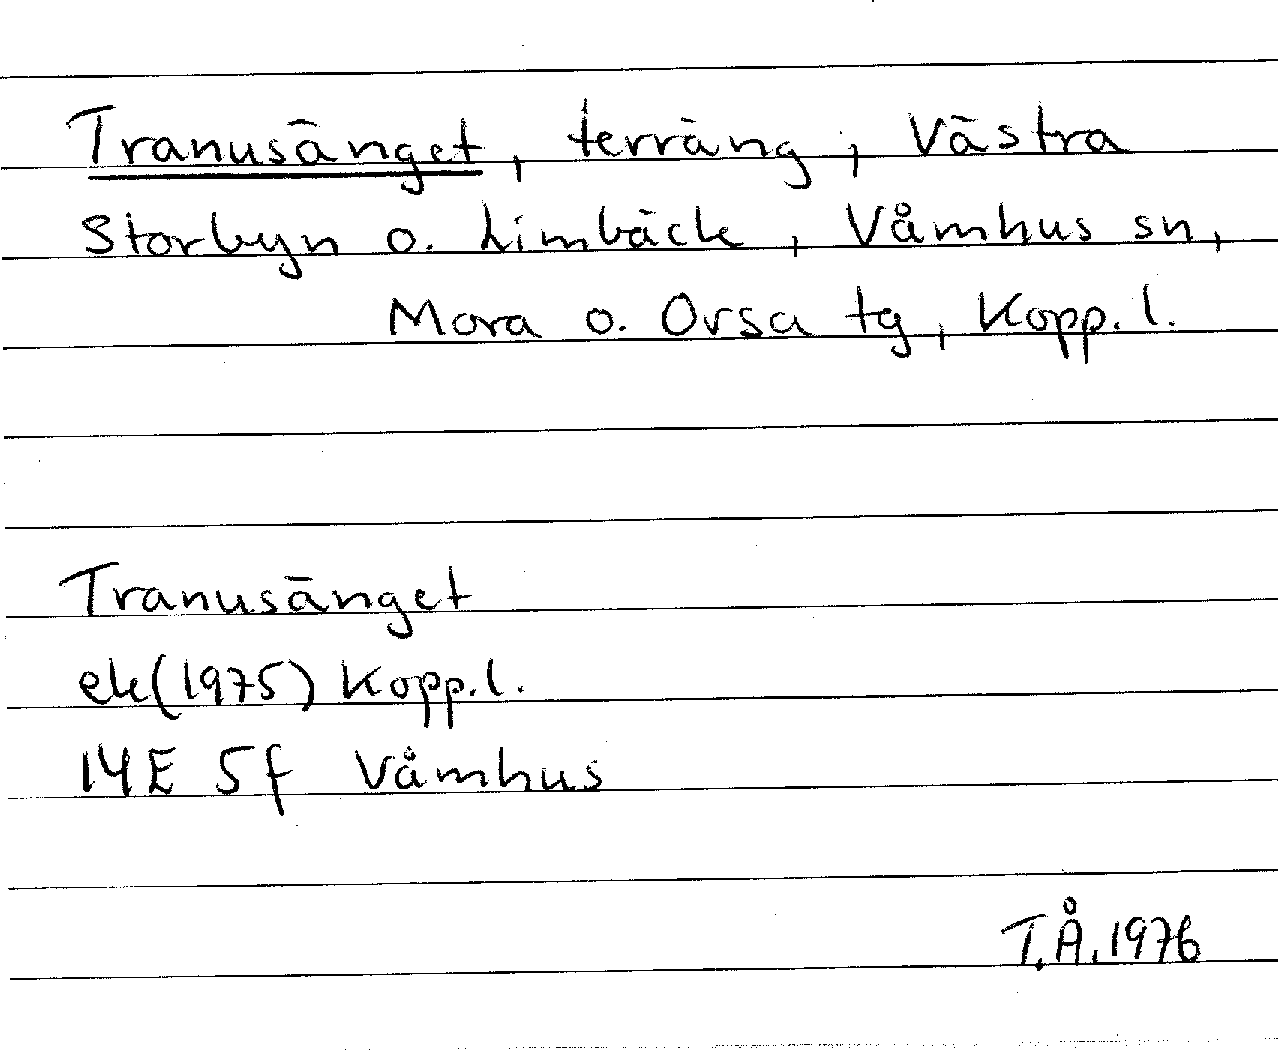 Tranusänget, terräng, Västra
Storbyn o. Limbäck, Våmhus sn,
Mora o. Orsa tg, Kopp. l.
Tranusänget
ek(1975) Kopp. l.
14E 5f Våmhus
T.Å. 1976